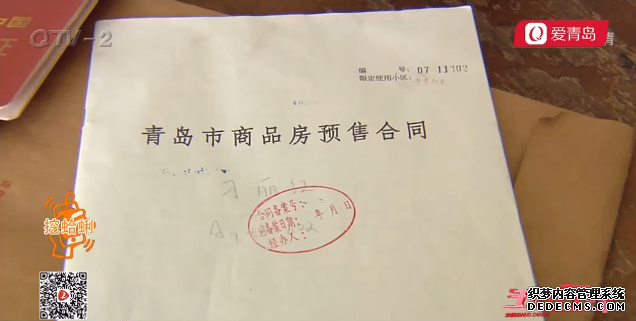 QTV-2
爱青岛
编 号: 07-11302
限定使用小区:
青岛市商品房预售合同
刁丽红
合同备案号:
合同备案日期: 年 月 日
经办人:
挖蛤蜊
织梦内容管理系统
DEDECMS.COM